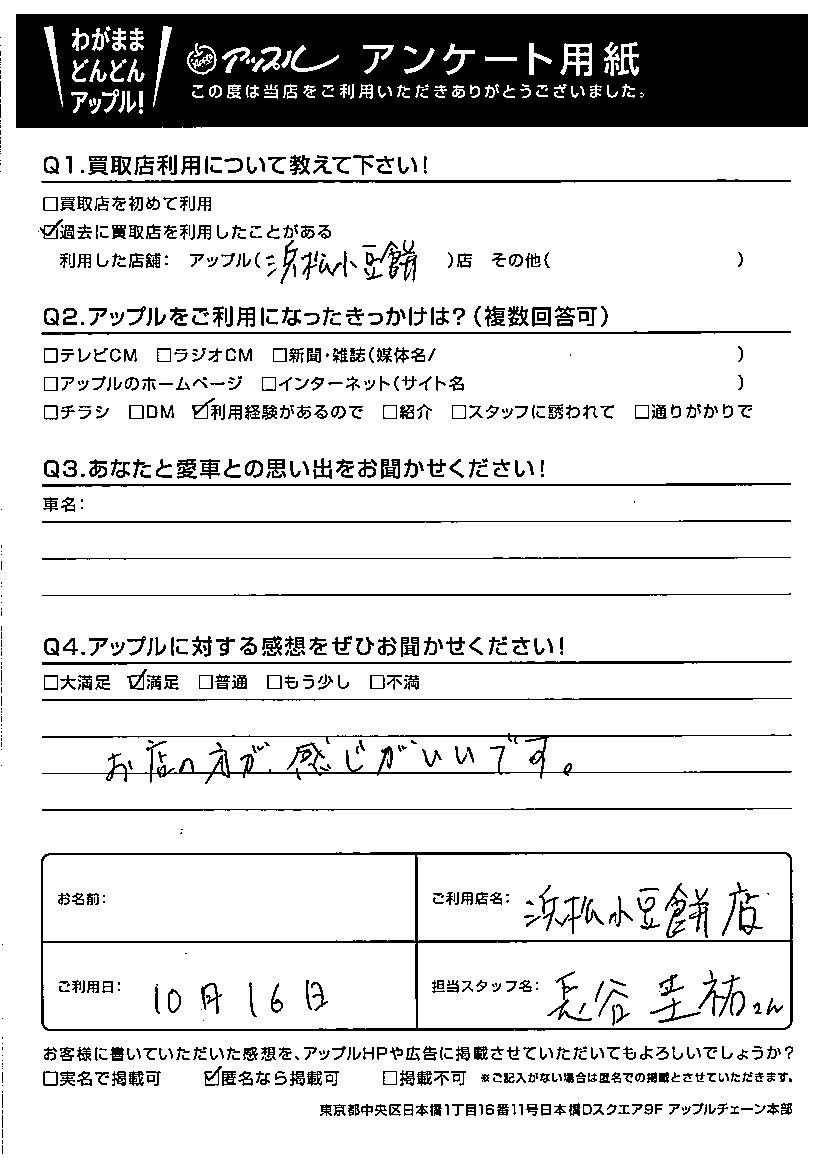 わがまま
どんどん
アップル!
アップル アンケート用紙
この度は当店をご利用いただきありがとうございました。
Q1.買取店利用について教えて下さい!
□買取店を初めて利用
☑過去に買取店を利用したことがある
利用した店舗: アップル(浜松小豆餅 )店 その他( )
Q2.アップルをご利用になったきっかけは?(複数回答可)
□テレビCM □ラジオCM □新聞・雑誌(媒体名/ )
□アップルのホームページ □インターネット(サイト名 )
□チラシ □DM ☑利用経験があるので □紹介 □スタッフに誘われて □通りがかりで
Q3.あなたと愛車との思い出をお聞かせください!
車名:
Q4.アップルに対する感想をぜひお聞かせください!
□大満足 ☑満足 □普通 □もう少し □不満
お店の方が、感じがいいです。
お名前:
ご利用店名: 浜松小豆餅店
ご利用日: 10月16日
担当スタッフ名: 長谷圭祐さん
お客様に書いていただいた感想を、アップルHPや広告に掲載させていただいてもよろしいでしょうか?
□実名で掲載可 ☑匿名なら掲載可 □掲載不可 ※ご記入がない場合は匿名での掲載とさせていただきます。
東京都中央区日本橋1丁目16番11号日本橋Dスクエア9F アップルチェーン本部